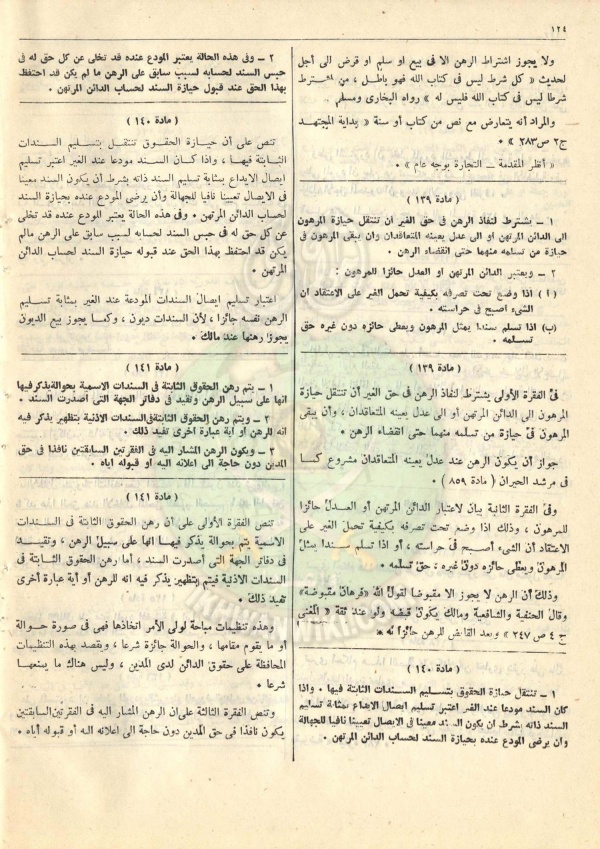 ١٢٤
ولا يجوز اشتراط الرهن الا فى بيع او سلم او قرض الى أجل
لحديث « كل شرط ليس فى كتاب الله فهو باطل ، من اشترط
شرطا ليس فى كتاب الله فليس له » رواه البخارى ومسلم
والمراد أنه يتعارض مع نص من كتاب أو سنة « بداية المجتهد
ج٢ ص٢٨٣ » ٠
« أنظر المقدمة ــ التجارة بوجه عام » ٠
( مادة ١٣٩ )
١ ــ يشترط لنفاذ الرهن فى حق الغير ان تنتقل حيازة المرهون
الى الدائن المرتهن او الى عدل يعينه المتعاقدان وان يبقى المرهون فى
حيازة من تسلمه منهما حتى انقضاء الرهن ٠
٢ ــ ويعتبر الدائن المرتهن او العدل حائزا للمرهون :
( أ ) اذا وضع تحت تصرفه بكيفية تحمل الغير على الاعتقاد ان
الشىء اصبح فى حراسته ٠
(ب) اذا تسلم سندا يمثل المرهون ويعطى حائزه دون غيره حق
تسلمه ٠
( مادة ١٣٩ )
فى الفقرة الأولى يشترط لنفاذ الرهن فى حق الغير أن تنتقل حيازة
المرهون الى الدائن المرتهن أو الى عدل يعينه المتعاقدان ، وأن يبقى
المرهون فى حيازة من تسلمه منهما حتى انقضاء الرهن ٠
جواز أن يكون الرهن عند عدل يعينه المتعاقدان مشروع كما
فى مرشد الحيران ( مادة ٨٥٩ ) ٠
وفى الفقرة الثانية بيان لاعتبار الدائن المرتهن أو العدل حائزا
للمرهون ، وذلك اذا وضع تحت تصرفه بكيفية تحمل الغير على
الاعتقاد أن الشىء أصبح فى حراسته ، أو اذا تسلم سندا يمثل
المرهون ويعطى حائزه دون غيره : حق تسلمه ٠
وذلك أن الرهن لا يجوز الا مقبوضا لقول الله «فرهان مقبوضة»
وقال الحنفية والشافعية ومالك يكون قبضه ولو عند ثقة « المغنى
ج ٤ ص ٢٤٧ » وبعد القابض للرهن حائزا له ٠
( مادة ١٤٠ )
١ ــ تنتقل حيازة الحقوق بتسليم السندات الثابتة فيها ٠ واذا
كان السند مودعا عند الغير اعتبر تسليم ايصال الايداع بمثابة تسليم
السند ذاته بشرط ان يكون السند معينا فى الايصال تعيينا نافيا للجهالة
وان يرضى المودع عنده بحيازة السند لحساب الدائن المرتهن ٠
٢ ــ وفى هذه الحالة يعتبر المودع عنده قد تخلى عن كل حق له فى
حبس السند لحسابه لسبب سابق على الرهن ما لم يكن قد احتفظ
بهذا الحق عند قبول حيازة السند لحساب الدائن المرتهن ٠
( مادة ١٤٠ )
تنص على أن حيازة الحقوق تنتقل بتسليم السندات
الثابتة فيها ، واذا كان السند مودعا عند الغير اعتبر تسليم
ايصال الايداع بمثابة تسليم السند ذاته بشرط أن يكون السند معينا
فى الايصال تعيينا نافيا للجهالة وأن يرضى المودع عنده بحيازة السند
لحساب الدائن المرتهن ٠ وفى هذه الحالة يعتبر المودع عنده قد تخلى
عن كل حق له فى حبس السند لحسابه لسبب سابق على الرهن مالم
يكن قد احتفظ بهذا الحق عند قبوله حيازة السند لحساب الدائن
المرتهن ٠
اعتبار تسليم ايصال السندات المودعة عند الغير بمثابة تسليم
الرهن نفسه جائزا ، لأن السندات ديون ، وكما يجوز بيع الديون
يجوز رهنها عند مالك ٠
( مادة ١٤١ )
١ ــ يتم رهن الحقوق الثابتة فى السندات الاسمية بحوالة يذكر فيها
انها على سبيل الرهن وتقيد فى دفاتر الجهة التى أصدرت السند ٠
٢ ــ ويتم رهن الحقوق الثابتة فى السندات الاذنية بتظهير يذكر فيه
انه للرهن او أية عبارة اخرى تفيد ذلك ٠
٣ ــ ويكون الرهن المشار اليه فى الفقرتين السابقتين نافذا فى حق
المدين دون حاجة الى اعلانه اليه او قبوله اياه ٠
( مادة ١٤١ )
تنص الفقرة الأولى على أن رهن الحقوق الثابتة فى السندات
الاسمية يتم بحوالة يذكر فيها انها على سبيل الرهن ، وتقيد
فى دفاتر الجهة التى أصدرت السند ، أما رهن الحقوق الثابتة فى
السندات الاذنية فيتم بتظهير يذكر فيه انه للرهن أو أية عبارة أخرى
تفيد ذلك ٠
وهذه تنظيمات مباحة لولى الأمر اتخاذها فهى فى صورة حوالة
أو ما يقوم مقامها ، والحوالة جائزة شرعا ، ويقصد بهذه التنظيمات
المحافظة على حقوق الدائن لدى المدين ، وليس هناك ما يمنعها
شرعا ٠
وتنص الفقرة الثالثة على ان الرهن المشار اليه فى الفقرتين السابقتين
يكون نافذا فى حق المدين دون حاجة الى اعلانه اليه او قبوله أياه ٠